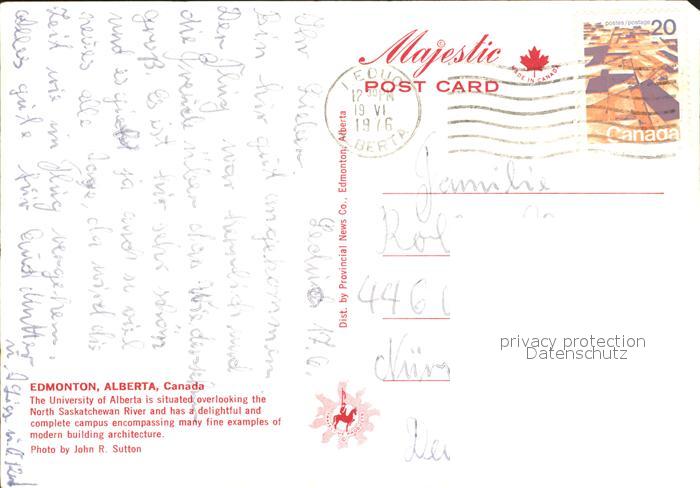 Majestic
MADE IN CANADA
POST CARD
postes/postage 20
Canada
LEDUC
12 PM
19 VI
1976
ALBERTA
Leduc 17.6.
Ihr Lieben,
Bin hier gut angekommen.
Der Flug war herrlich und
die Freude über das Wiedersehen
groß. Es ist hier sehr schön
und es gibt ja auch so viel
neues alle Tage, da wird die
Zeit wie im Flug vergehen.
alles gute für Euch Mutter
Familie
446
Nür
Dist. by Provincial News Co., Edmonton, Alberta
privacy protection
Datenschutz
EDMONTON, ALBERTA, Canada
The University of Alberta is situated overlooking the
North Saskatchewan River and has a delightful and
complete campus encompassing many fine examples of
modern building architecture.
Photo by John R. Sutton